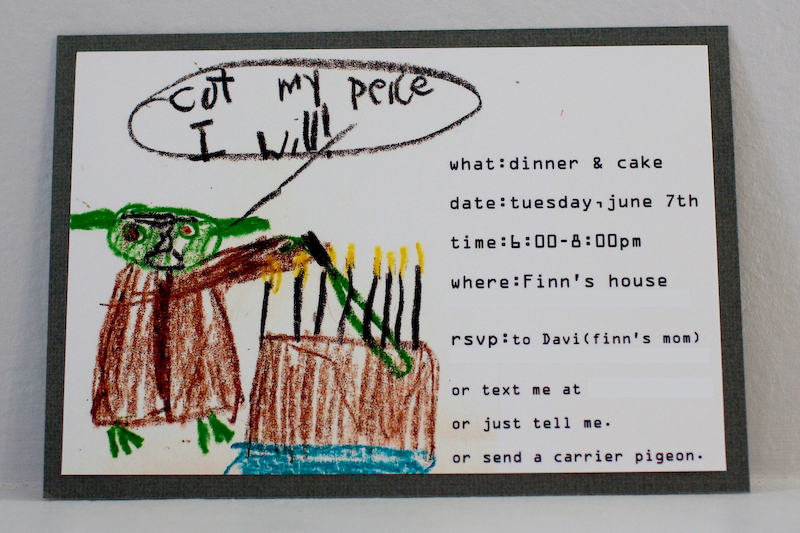 cut my peice
I will!!
what:dinner & cake
date:tuesday,june 7th
time:6:00-8:00pm
where:Finn's house
rsvp:to Davi(finn's mom)
or text me at
or just tell me.
or send a carrier pigeon.